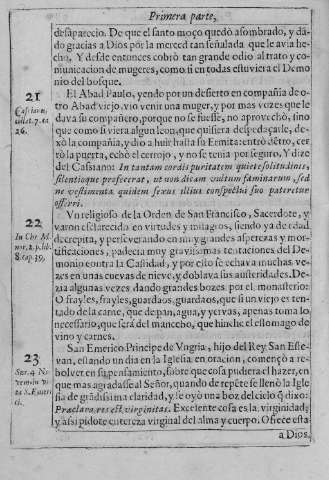 Primera parte,
desaparecio. De que el santo moço quedò asombrado, y dã-
do gracias a Dios por la merced tan señalada que le avia he-
cho. Y desde entonces cobrò tan grande odio al trato y co-
municacion de mugeres, como si en todas estuviera el Demo
nio del bosque.
21
Casiano,
collat. 7. ca
26.
El Abad Paulo, yendo por un desierto en compañia de o-
tro Abad viejo, vio venir una muger, y por mas vezes que le
dava su compañero, porque no se fuesse, no aprovechò, sino
que como si viera algun leon, que quisiera despedaçarle, de-
xò la compañia, y dio a huir hasta su Ermita: entrò dẽtro, cer
rò la puerta, echò el cerrojo, y no se tenia por seguro. Y dize
del Cassiano: In tantam cordis puritatem quiete solitudinis,
silentioque profecerat, ut non dicam vultum fœminarum, sed
ne vestimenta quidem sexus illius conspectui suo pateretur
offerri.
22
In Chr. M.
nor. 2. p. lib.
8. cap. 39.
Vn religioso de la Orden de San Francisco, Sacerdote, y
varon esclarecido en virtudes y milagros, siendo ya de edad
decrepita, y perseverando en muy grandes asperezas y mor-
tificaciones, padecia muy gravissimas tentaciones del De-
monio contra la Castidad, y por esto se echava muchas ve-
zes en unas cuevas de nieve, y doblava sus austeridades. De-
zia algunas vezes dando grandes bozes por el monasterio:
O frayles, frayles, guardaos, guardaos, que si un viejo es ten-
tado de la carne, que de pan, agua, y yervas, apenas toma lo
necessario, que serà del mancebo, que hinche el estomago de
vino y carnes.
23
Sur. 4. No
vemb. in vi
ta S. Emeri
ci.
San Emerico Principe de Vngria, hijo del Rey San Este-
van, estando un dia en la Iglesia en oracion, començò a re-
bolver en su pensamiento, sobre que cosa pudiera el hazer, en
que mas agradasse al Señor, quando de repẽte se llenò la Igle
sia de grãdissima claridad, y se oyò una boz del cielo q̃ dixo:
Præclara res est virginitas. Excelente cosa es la virginidad;
y assi pido te entereza virginal del alma y cuerpo. Ofrece esta
a Dios,